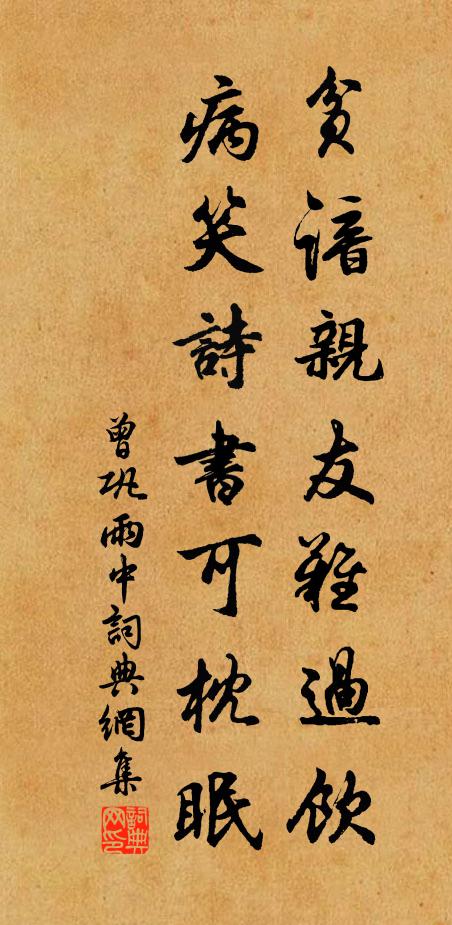 貧諳親友難過飲
病笑詩書可枕眠
曾巩雨中詞典網集
詞典網印